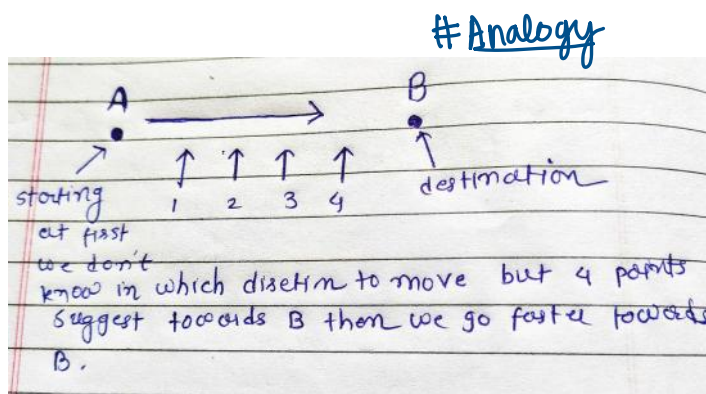 # Analogy
A B
starting
1 2 3 4
destination
at first
we don't
know in which disetim to move but 4 points
suggest towards B then we go faster towards
B.